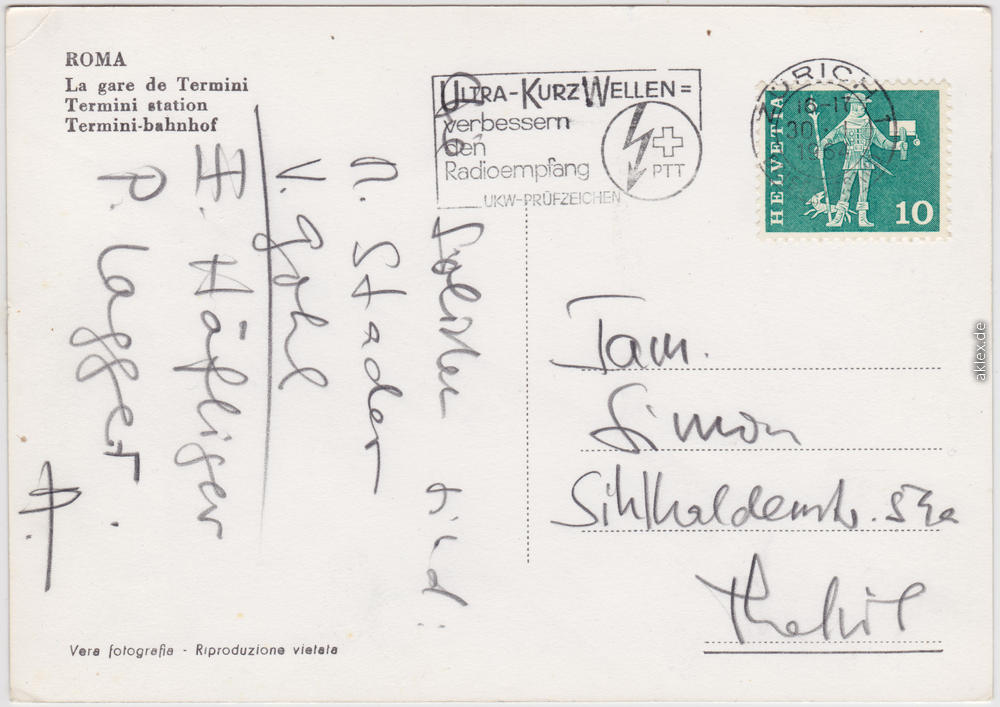 ROMA
La gare de Termini
Termini station
Termini-bahnhof
ULTRA-KURZWELLEN=
verbessern
den
Radioempfang
PTT
UKW-PRÜFZEICHEN
ZÜRICH 1
16-17
30
HELVETIA
10
Solisten sind:
M. Stader
V. Gohl
E. Häfliger
P. Lagger.
Fam.
Simon
Sihlhaldenstr. 53a
Thalwil
Vera fotografia - Riproduzione vietata
aklex.de